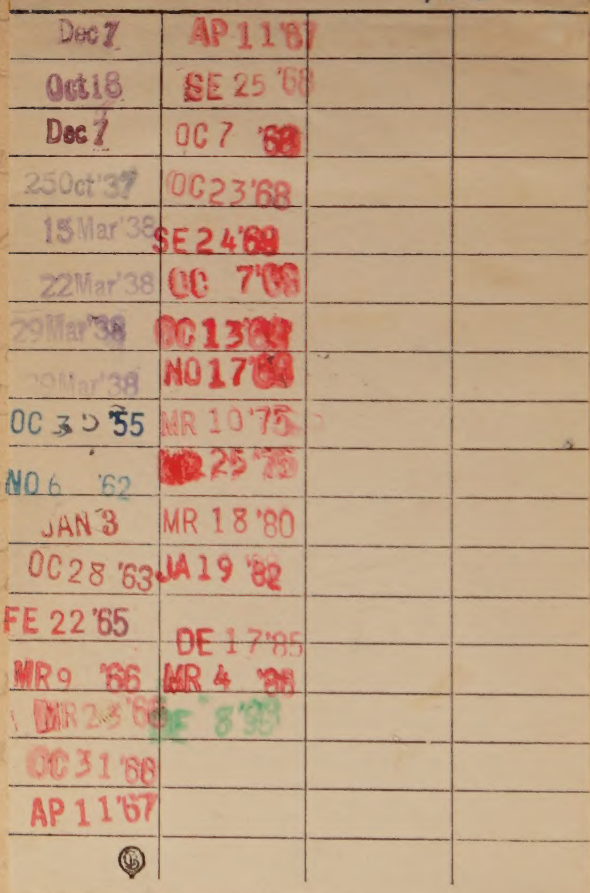 Dec 7
Oct 18
Dec 7
25 Oct '37
15 Mar '38
22 Mar '38
29 Mar '38
Mar '38
OC '55
NO 6 '62
JAN 3
OC 28 '63
FE 22 '65
MR 9 '66
MR 23 '66
OC 31 '66
AP 11 '67
AP 11 '67
SE 25 '68
OC 7 '68
OC 23 '68
SE 24 '69
OC 7 '69
OC 13 '69
NO 17 '69
MR 10 '75
25 '75
MR 18 '80
JA 19 '82
DE 17 '85
MR 4
DE 8